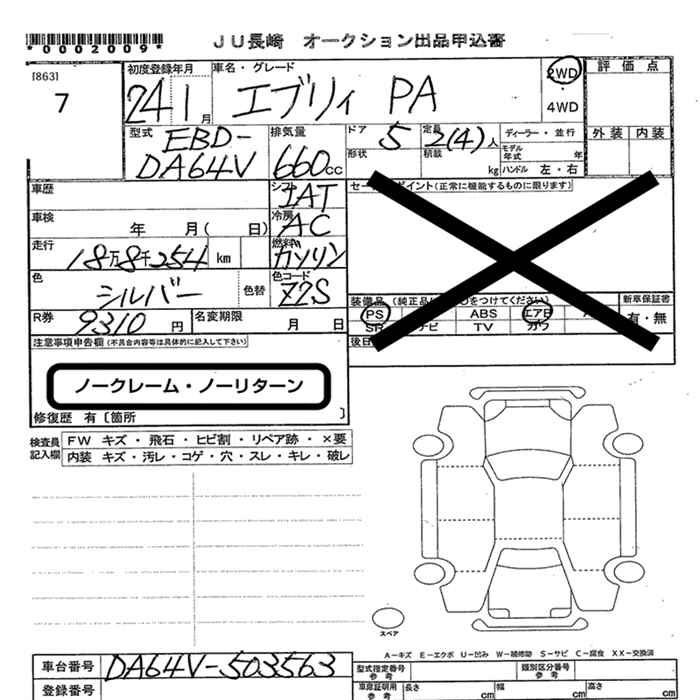 *0002009*
JU長崎 オークション出品申込書
[863]
7
初度登録年月
24 1月
車名・グレード
エブリィ PA
2WD
4WD
評価点
外装 内装
型式
EBD-
DA64V
排気量
660cc
ドア 5
形状
定員 2(4)人
積載 kg
ディーラー・並行
モデル年式 年
ハンドル 左・右
車歴
シフト
IAT
車検
年 月( 日)
冷房
AC
走行
18万8千254 km
燃料
ガソリン
色
シルバー
色替
色コード
Z2S
R券
9310円
名変期限
月 日
ポイント(正常に機能するものに限ります)
装備品 (純正品に つけてください)
新車保証書
有・無
PS ABS エアB
TV
注意事項申告欄(不具合内容等は具体的に記入して下さい)
ノークレーム・ノーリターン
修復歴 有〔箇所 〕
検査員
記入欄
FW キズ・飛石・ヒビ割・リペア跡・×要
内装 キズ・汚レ・コゲ・穴・スレ・キレ・破レ
スペア
A-キズ E-エクボ U-凹み W-補修跡 S-サビ C-腐食 XX-交換済
車台番号
DA64V-503563
登録番号
型式指定番号
参考
類別区分番号
参考
車庫証明用
参考
長さ cm
幅 cm
高さ cm